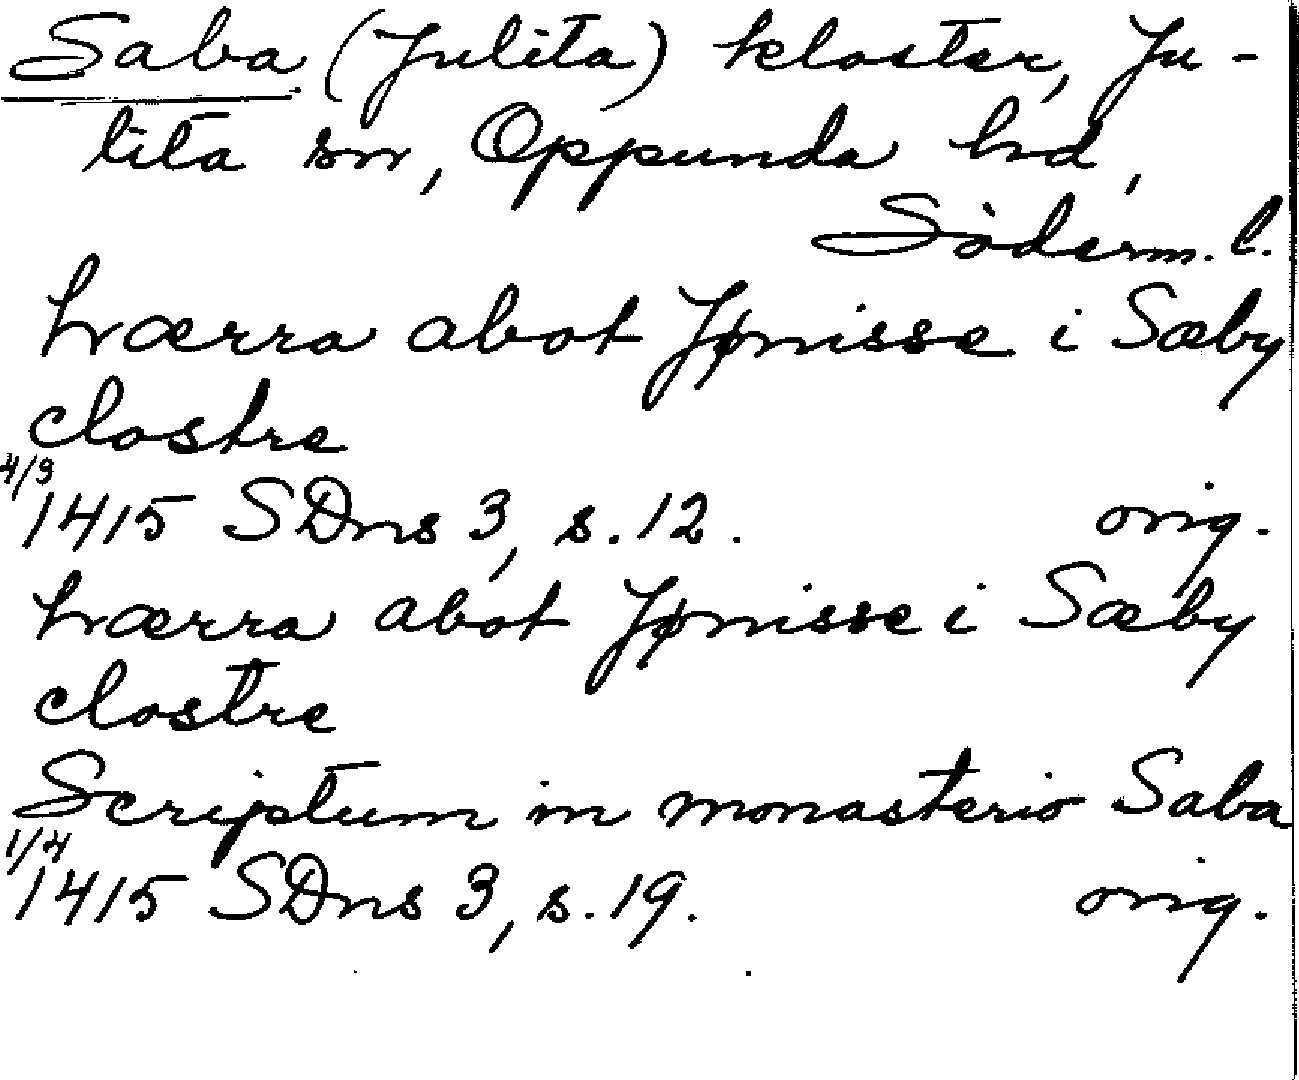 Saba (Julita) kloster, Ju-
lita sn, Oppunda hd,
Söderm. l.
hærra abot Jønisse i Sæby
clostre
4/3
1415 SDns 3, s. 12. orig.
hærra abot Jønisse i Sæby
clostre
Scriptum in monasterio Saba
1/4
1415 SDns 3, s. 19. orig.